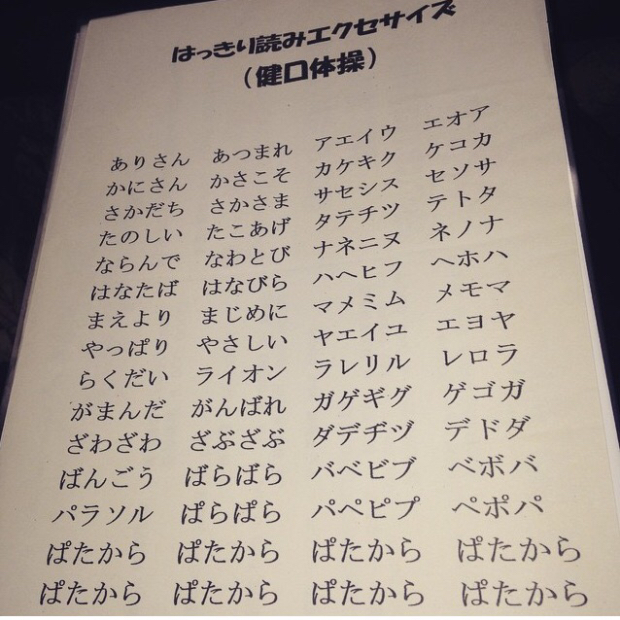 はっきり読みエクセサイズ
（健口体操）
ありさん　あつまれ　アエイウ　エオア
かにさん　かさこそ　カケキク　ケコカ
さかだち　さかさま　サセシス　セソサ
たのしい　たこあげ　タテチツ　テトタ
ならんで　なわとび　ナネニヌ　ネノナ
はなたば　はなびら　ハヘヒフ　ヘホハ
まえより　まじめに　マメミム　メモマ
やっぱり　やさしい　ヤエイユ　エヨヤ
らくだい　ライオン　ラレリル　レロラ
がまんだ　がんばれ　ガゲギグ　ゲゴガ
ざわざわ　ざぶざぶ　ダデヂヅ　デドダ
ばんごう　ばらばら　バベビブ　ベボバ
パラソル　ぱらぱら　パペピプ　ペポパ
ぱたから　ぱたから　ぱたから　ぱたから
ぱたから　ぱたから　ぱたから　ぱたから